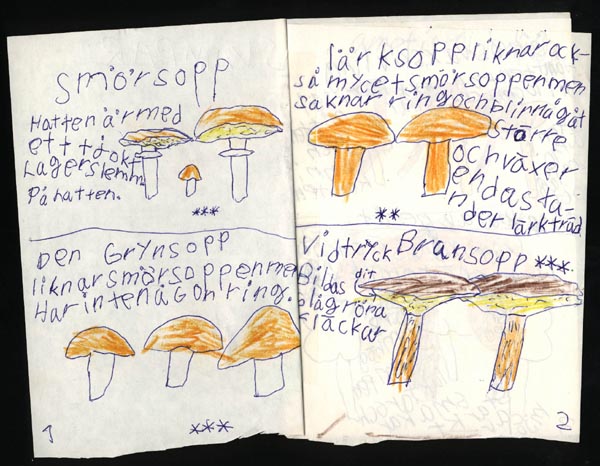 smörsopp
Hatten är med
ett tjokt
Lager slemm
På hatten.
***
Den Grynsopp
liknar smörsoppen men
Har inte någon ring.
***
1
lärksopp liknar ock-
så mycet smörsoppen men
saknar ring och blir någåt
större
och växer
endast u-
nder lärkträd.
**
Vid tryck Bransopp ***
Bildas dit
blågröna
fläckar
2